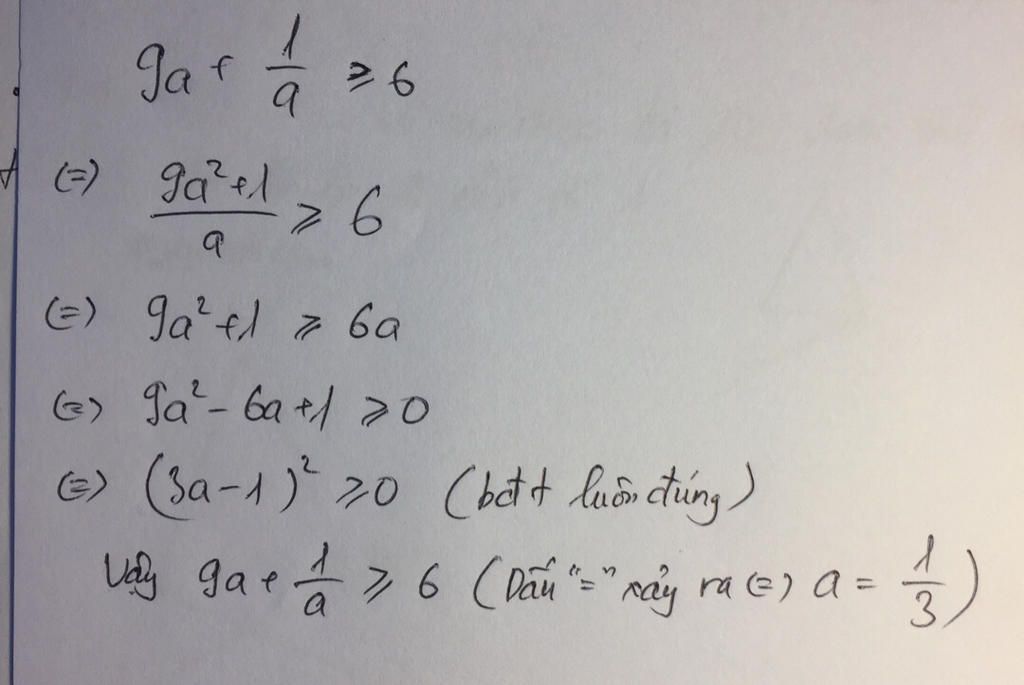 9a + 1/a ≥ 6
(=) (9a²+1)/a ≥ 6
(=) 9a²+1 ≥ 6a
(=) 9a² - 6a + 1 ≥ 0
(=) (3a - 1)² ≥ 0 (bđt luôn đúng)
Vậy 9a + 1/a ≥ 6 (Dấu "=" xảy ra (=) a = 1/3)